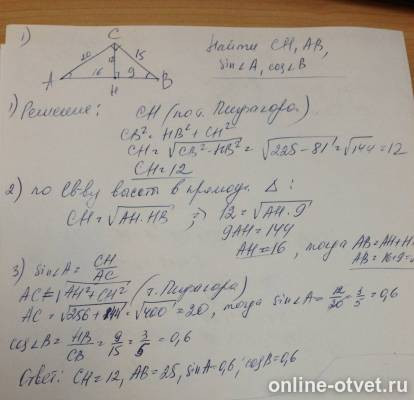 1)
C
20
15
12
A
16
H
9
B
Найти CH, AB,
sin∠A, cos∠B
1) Решение: CH (по т. Пифагора)
CB² = HB² + CH²
CH = √CB² - HB² = √225 - 81 = √144 = 12
CH = 12
2) по св-ву высоты в прямоуг. Δ:
CH = √AH·HB ⇒ 12 = √AH·9
9AH = 144
AH = 16, тогда AB = AH + H
AB = 16 + 9 =
3) sin∠A = CH/AC
AC = √AH² + CH² (т. Пифагора)
AC = √256 + 144 = √400 = 20, тогда sin∠A = 12/20 = 3/5 = 0,6
cos∠B = HB/CB = 9/15 = 3/5 = 0,6
Ответ: CH = 12, AB = 25, sinA = 0,6; cosB = 0,6
online-otvet.ru